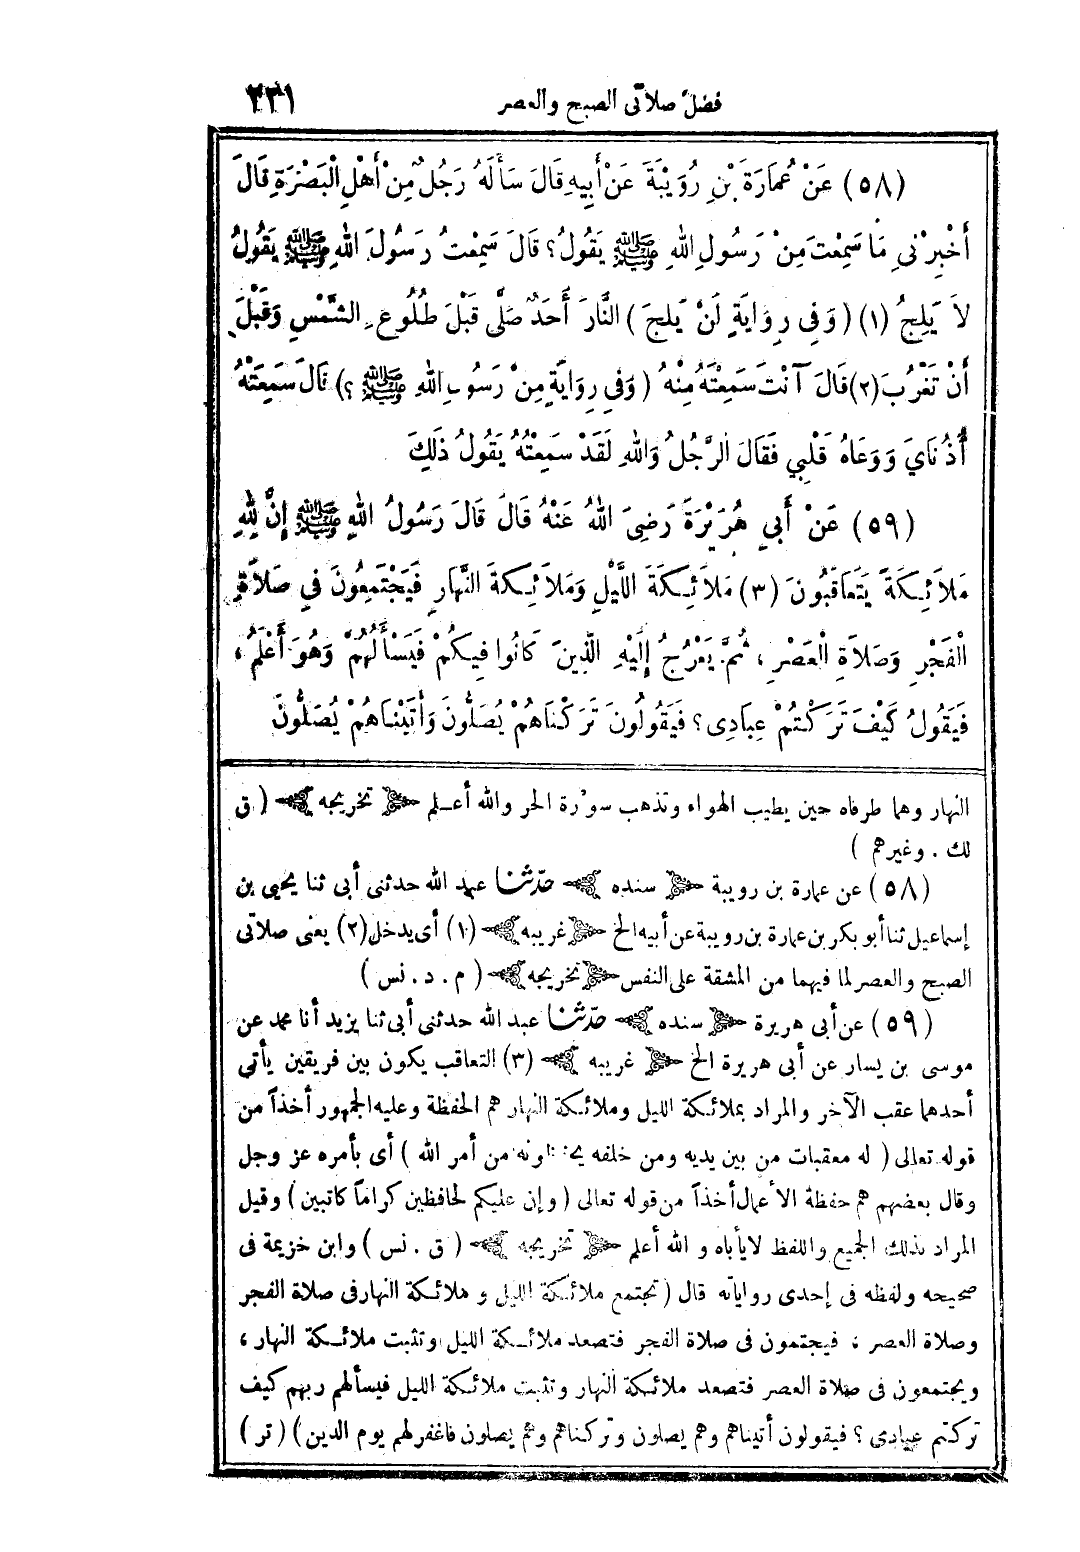 فضل صلاتى الصبح والعصر ٢٣١
(٥٨) عَنْ عُمَارَةَ بْنِ رُوَيْبَةَ عَنْ أَبِيهِ قَالَ سَأَلَهُ رَجُلٌ مِنْ أَهْلِ الْبَصْرَةِ قَالَ
أَخْبِرْنِى مَا سَمِعْتَ مِنْ رَسُولِ اللهِ ﷺ يَقُولُ؟ قَالَ سَمِعْتُ رَسُولَ اللهِ ﷺ يَقُولُ
لاَ يَلِجُ (١) (وَفِى رِوَايَةٍ لَنْ يَلِجَ) النَّارَ أَحَدٌ صَلَّى قَبْلَ طُلُوعِ الشَّمْسِ وَقَبْلَ
أَنْ تَغْرُبَ (٢) قَالَ آنْتَ سَمِعْتَهُ مِنْهُ (وَفِى رِوَايَةٍ مِنْ رَسُولِ اللهِ ﷺ ؟) قَالَ سَمِعَتْهُ
أُذُنَايَ وَوَعَاهُ قَلْبِي فَقَالَ الرَّجُلُ وَاللهِ لَقَدْ سَمِعْتُهُ يَقُولُ ذَلِكَ
(٥٩) عَنْ أَبِي هُرَيْرَةَ رَضِىَ اللهُ عَنْهُ قَالَ قَالَ رَسُولُ اللهِ ﷺ إِنَّ لِلّهِ
مَلاَئِكَةً يَتَعَاقَبُونَ (٣) مَلاَئِكَةَ اللَّيْلِ وَمَلاَئِكَةَ النَّهَارِ فَيَجْتَمِعُونَ فِي صَلاَةِ
الْفَجْرِ وَصَلاَةِ الْعَصْرِ، ثُمَّ يَعْرُجُ إِلَيْهِ الَّذِينَ كَانُوا فِيكُمْ فَيَسْأَلُهُمْ وَهُوَ أَعْلَمُ،
فَيَقُولُ كَيْفَ تَرَكْتُمْ عِبَادِى؟ فَيَقُولُونَ تَرَكْنَاهُمْ يُصَلُّونَ وَأَتَيْنَاهُمْ يُصَلُّونَ
النهار وهما طرفاه حين يطيب الهواء وتذهب سورة الحر والله أعلم ﴿تخريجه﴾ (ق
لك . وغيرهم)
(٥٨) عن عمارة بن رويبة ﴿سنده﴾ حدّثنا عبد الله حدثنى أبى ثنا يحيى بن
إسماعيل ثنا أبو بكر بن عمارة بن رويبة عن أبيه الخ ﴿غريبه﴾ (١) أى يدخل (٢) يعنى صلاتى
الصبح والعصر لما فيهما من المشقة على النفس ﴿تخريجه﴾ (م . د . نس)
(٥٩) عن أبى هريرة ﴿سنده﴾ حدّثنا عبد الله حدثنى أبى ثنا يزيد أنا محمد عن
موسى بن يسار عن أبى هريرة الخ ﴿غريبه﴾ (٣) التعاقب يكون بين فريقين يأتى
أحدهما عقب الآخر والمراد بملائكة الليل وملائكة النهار هم الحفظة وعليه الجمهور أخذاً من
قوله تعالى (له معقبات من بين يديه ومن خلفه يحفظونه من أمر الله) أى بأمره عز وجل
وقال بعضهم هم حفظة الأعمال أخذاً من قوله تعالى (وإن عليكم لحافظين كراماً كاتبين) وقيل
المراد بذلك الجميع واللفظ لا يأباه والله أعلم ﴿تخريجه﴾ (ق . نس) وابن خزيمة فى
صحيحه ولفظه فى إحدى رواياته قال (تجتمع ملائكة الليل وملائكة النهار فى صلاة الفجر
وصلاة العصر، فيجتمون فى صلاة الفجر فتصعد ملائكة الليل وتثبت ملائكة النهار،
ويجتمعون فى صلاة العصر فتصعد ملائكة النهار وتثبت ملائكة الليل فيسألهم ربهم كيف
تركتم عبادى؟ فيقولون أتيناهم وهم يصلون وتركناهم وهم يصلون فاغفر لهم يوم الدين) (تر)